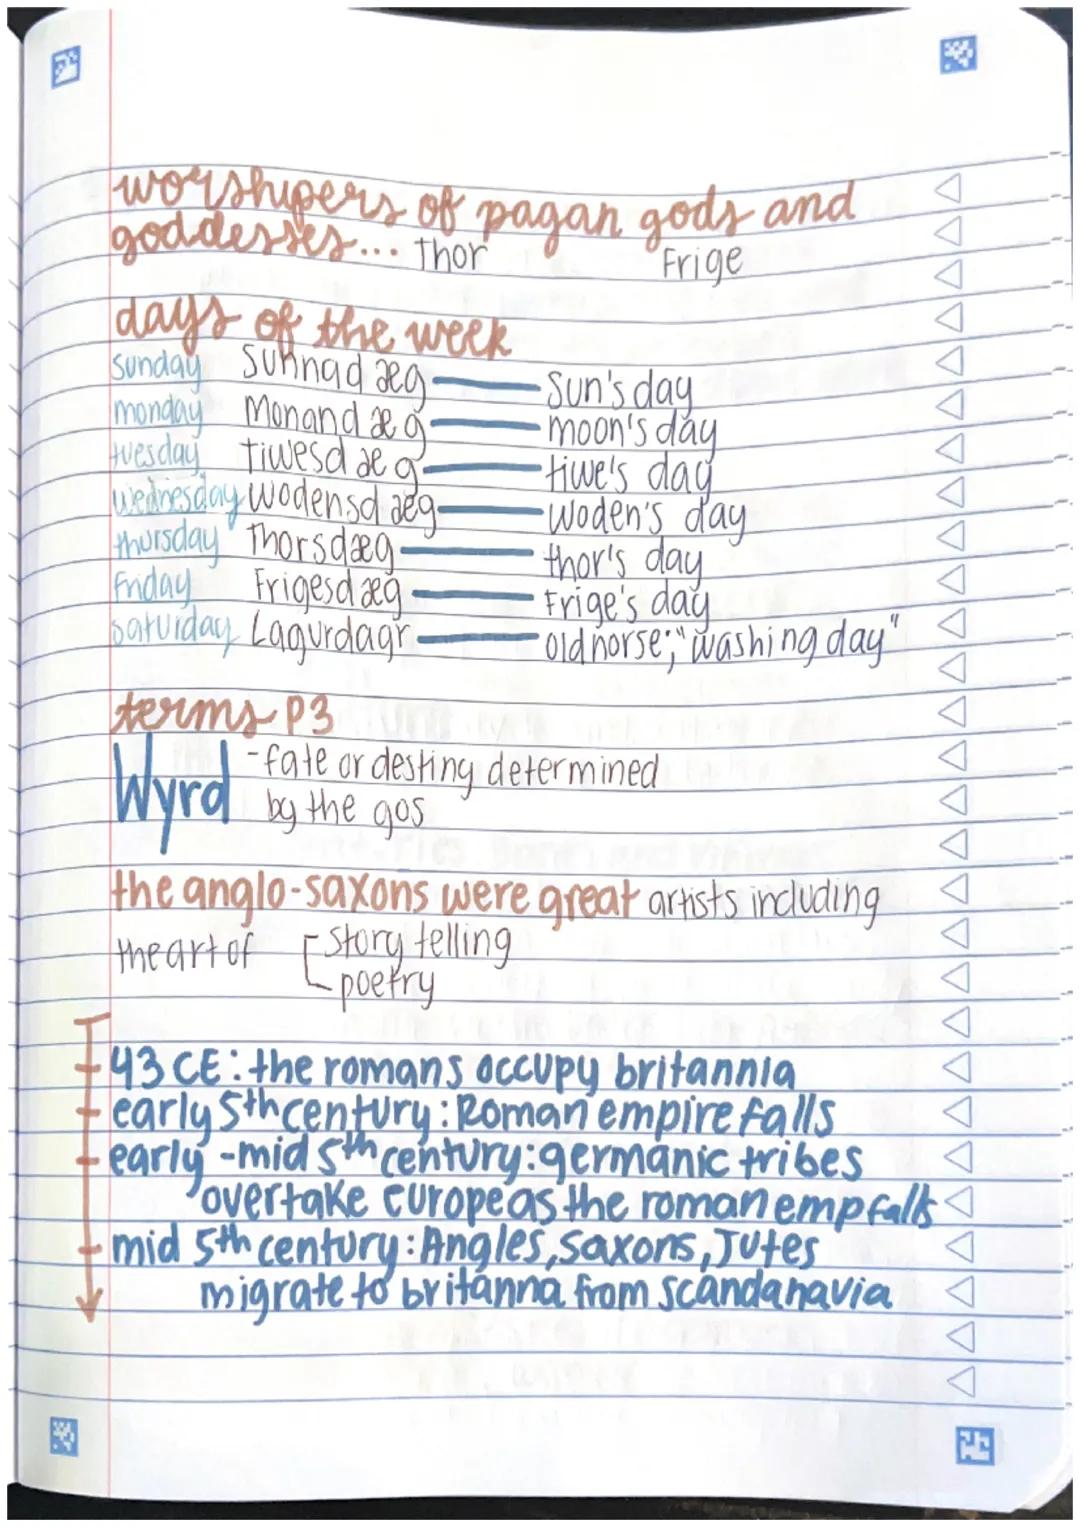 worshipers of pagan gods and
goddesses... Thor Frige
days of the week
sunday Sunnad æg — Sun's day
monday Monand æg — moon's day
tuesday Tiwesd æg — tiwe's day
wednesday Wodensd æg — woden's day
thursday Thorsdæg — thor's day
Friday Frigesd æg — Frige's day
saturday Lagurdagr — old norse; "washing day"
terms P3
Wyrd - fate or destiny determined
by the gos
the anglo-saxons were great artists including
the art of - story telling
- poetry
43 CE: the romans occupy britannia
early 5th century: Roman empire falls
early -mid 5th century: germanic tribes
overtake europe as the roman emp falls
mid 5th century: Angles, Saxons, Jutes
migrate to britanna from scandanavia